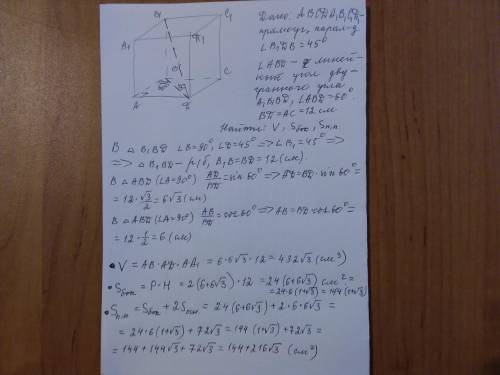 B₁ C₁
A₁ D₁
B C
A D
Дано: ABCDA₁B₁C₁D₁-
прямоуг. парал-д.
∠B₁DB = 45°
∠ABD - линей-
ный угол дву-
гранного угла
A₁B₁BD, ∠ABD = 60°.
BD = AC = 12 см
Найти: V, Sбок, Sп.п.
В △ B₁BD ∠B=90°, ∠D=45° => ∠B₁=45° =>
=> △B₁BD - р/б, B₁B=BD=12 (см).
В △ ABD (∠A=90°) AD/BD = sin 60° => AD=BD·sin 60° =
= 12·√3/2 = 6√3 (см)
В △ ABD (∠A=90°) AB/BD = cos 60° => AB=BD·cos 60° =
= 12·1/2 = 6 (см)
• V = AB·AD·AA₁ = 6·6√3·12 = 432√3 (см³)
• Sбок = P·H = 2(6+6√3)·12 = 24(6+6√3) см² =
= 24·6(1+√3) = 144(1+√3)
• Sп.п. = Sбок + 2Sосн. = 24(6+6√3) + 2·6·6√3 =
= 24·6(1+√3) + 72√3 = 144(1+√3) + 72√3 =
= 144+144√3+72√3 = 144+216√3 (см²)